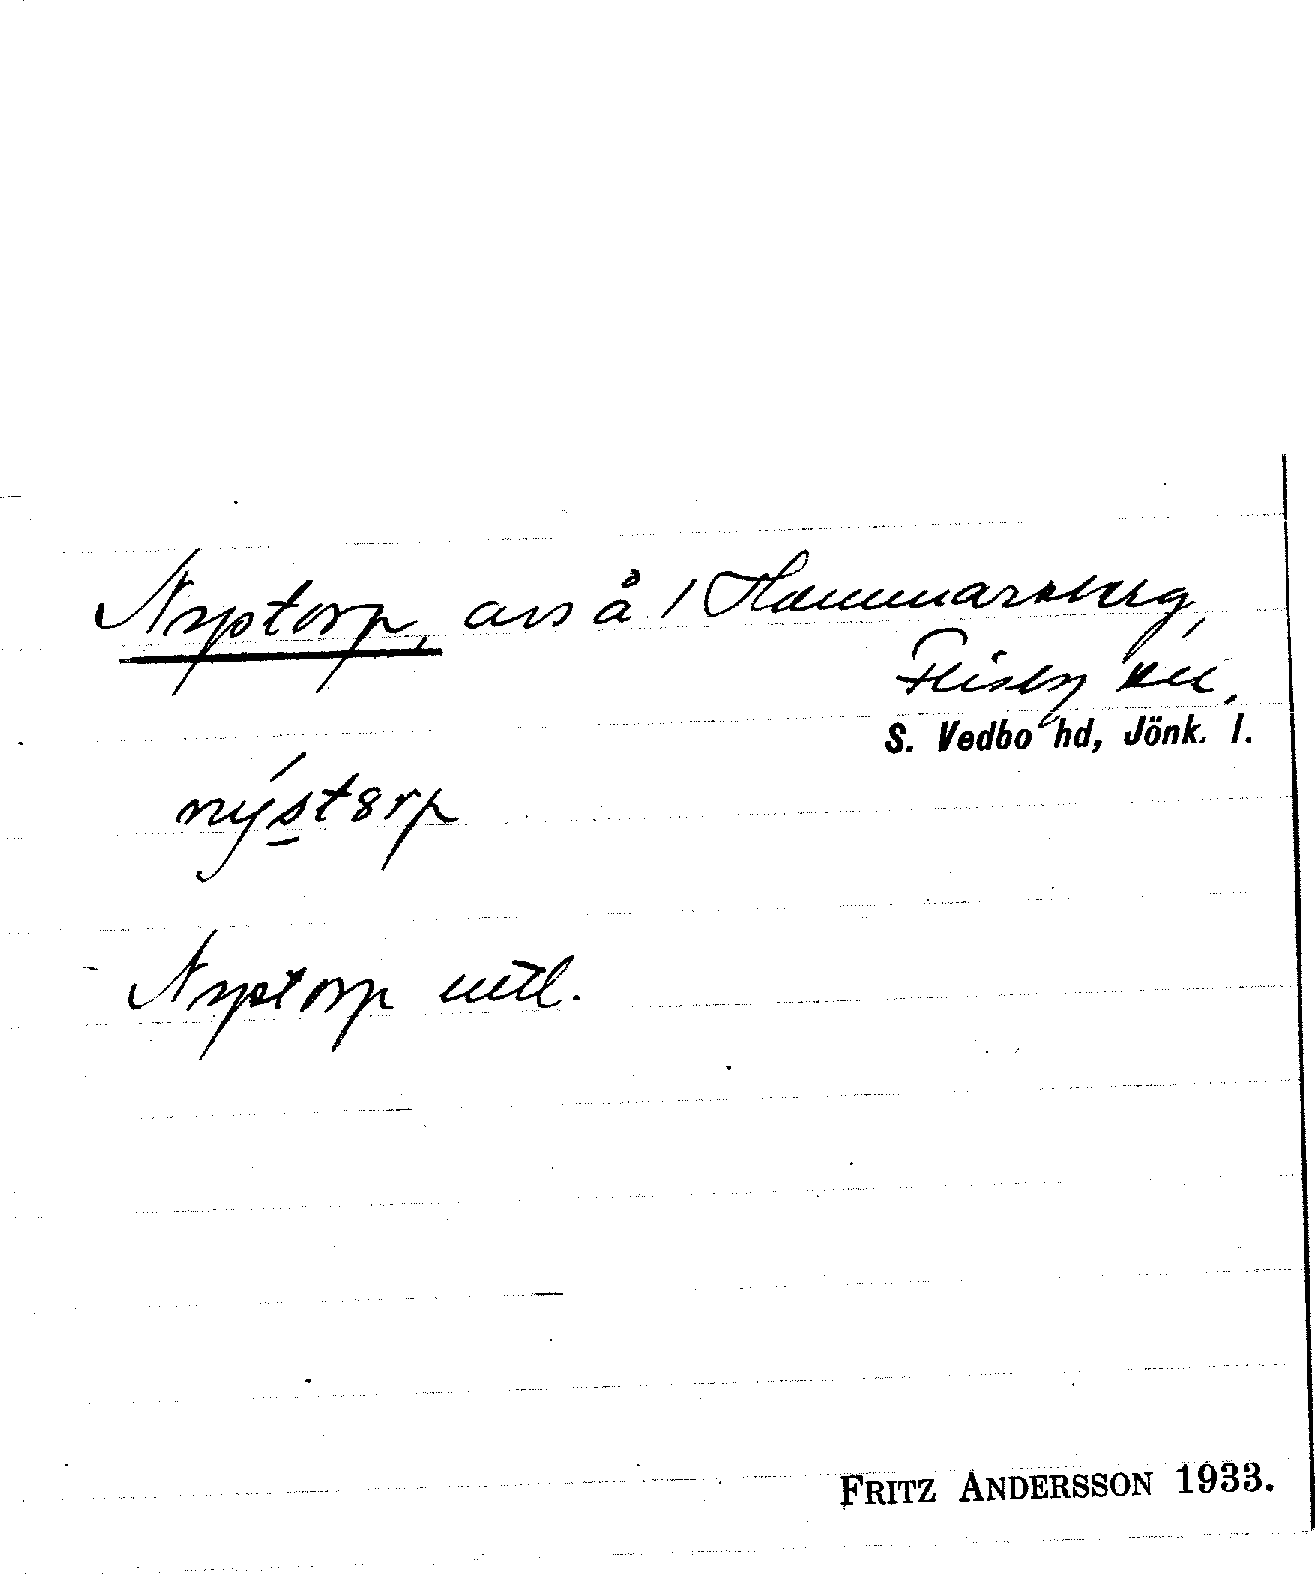 Nystorp, avs å 1 Hammarsberg,
Flisby sn,
S. Vedbo hd, Jönk. l.
nýst8rp
Nystorp uttl.
FRITZ ANDERSSON 1933.